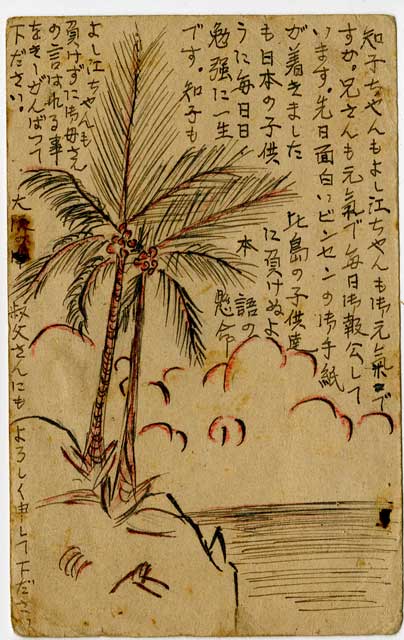 知子ちゃんもよし江ちゃんも御元氣で
すか。兄さんも元氣で毎日御報公して
います。先日面白いビンセンの御手紙
が着きました 比島の子供達
も日本の子供 に負けぬよ
うに毎日日 本語の
勉強に一生 懸命
です。知子も
よし江ちゃんも
負けずに御母さん
の言はれる事
をきーがんばって
下ださい。
大阪 叔父さんにもよろしく申して下ださい